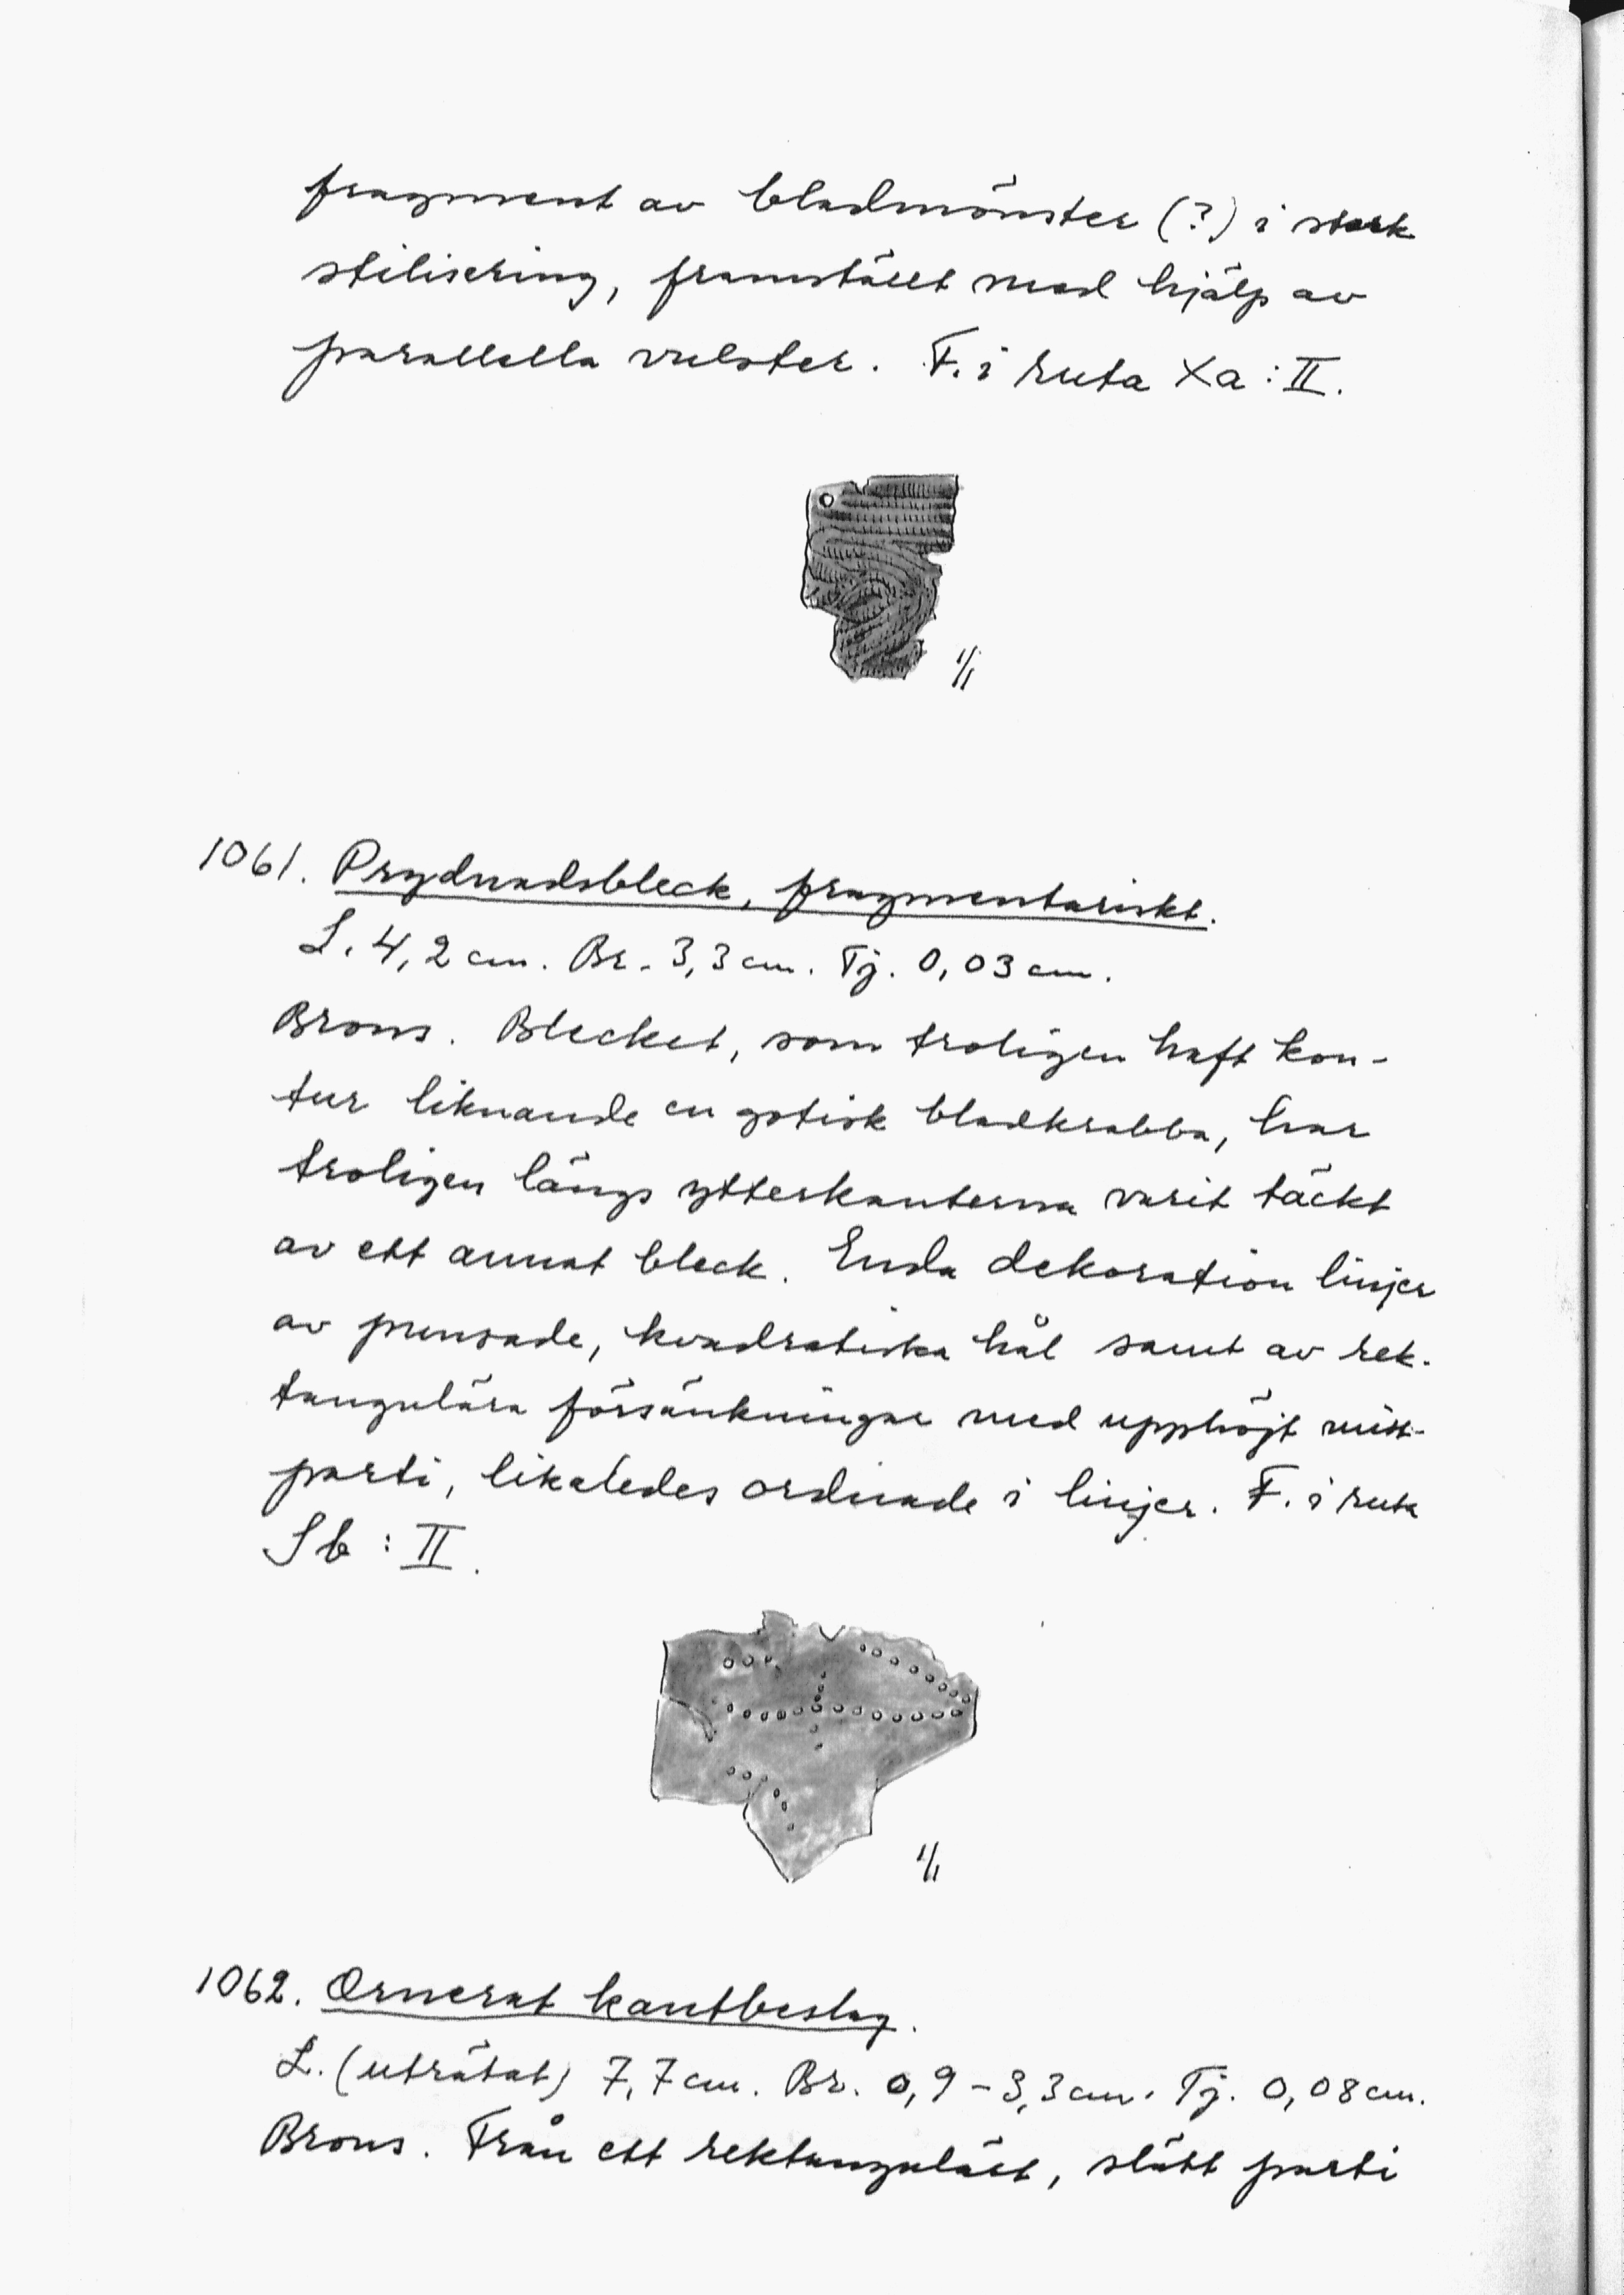 fragment av bladmönster (?) i stark
stilisering, framställt med hjälp av
parallella vulster. F. i ruta Xa : II.
1/1
1061. Prydnadsbleck, fragmentariskt.
L. 4,2 cm. Br. 3,3 cm. Tj. 0,03 cm.
Brons. Blecket, som troligen haft kon-
tur liknande en gotisk bladkrabba, har
troligen längs ytterkanterna varit täckt
av ett annat bleck. Enda dekoration linjer
av punsade, kvadratiska hål samt av rek-
tangulära försänkningar med upphöjt mitt-
parti, likaledes ordnade i linjer. F. i ruta
Sb : II.
1/1
1062. Ornerat kantbeslag.
L. (uträtat) 7,7 cm. Br. 0,9 – 3,3 cm. Tj. 0,08 cm.
Brons. Från ett rektangulärt, slätt parti